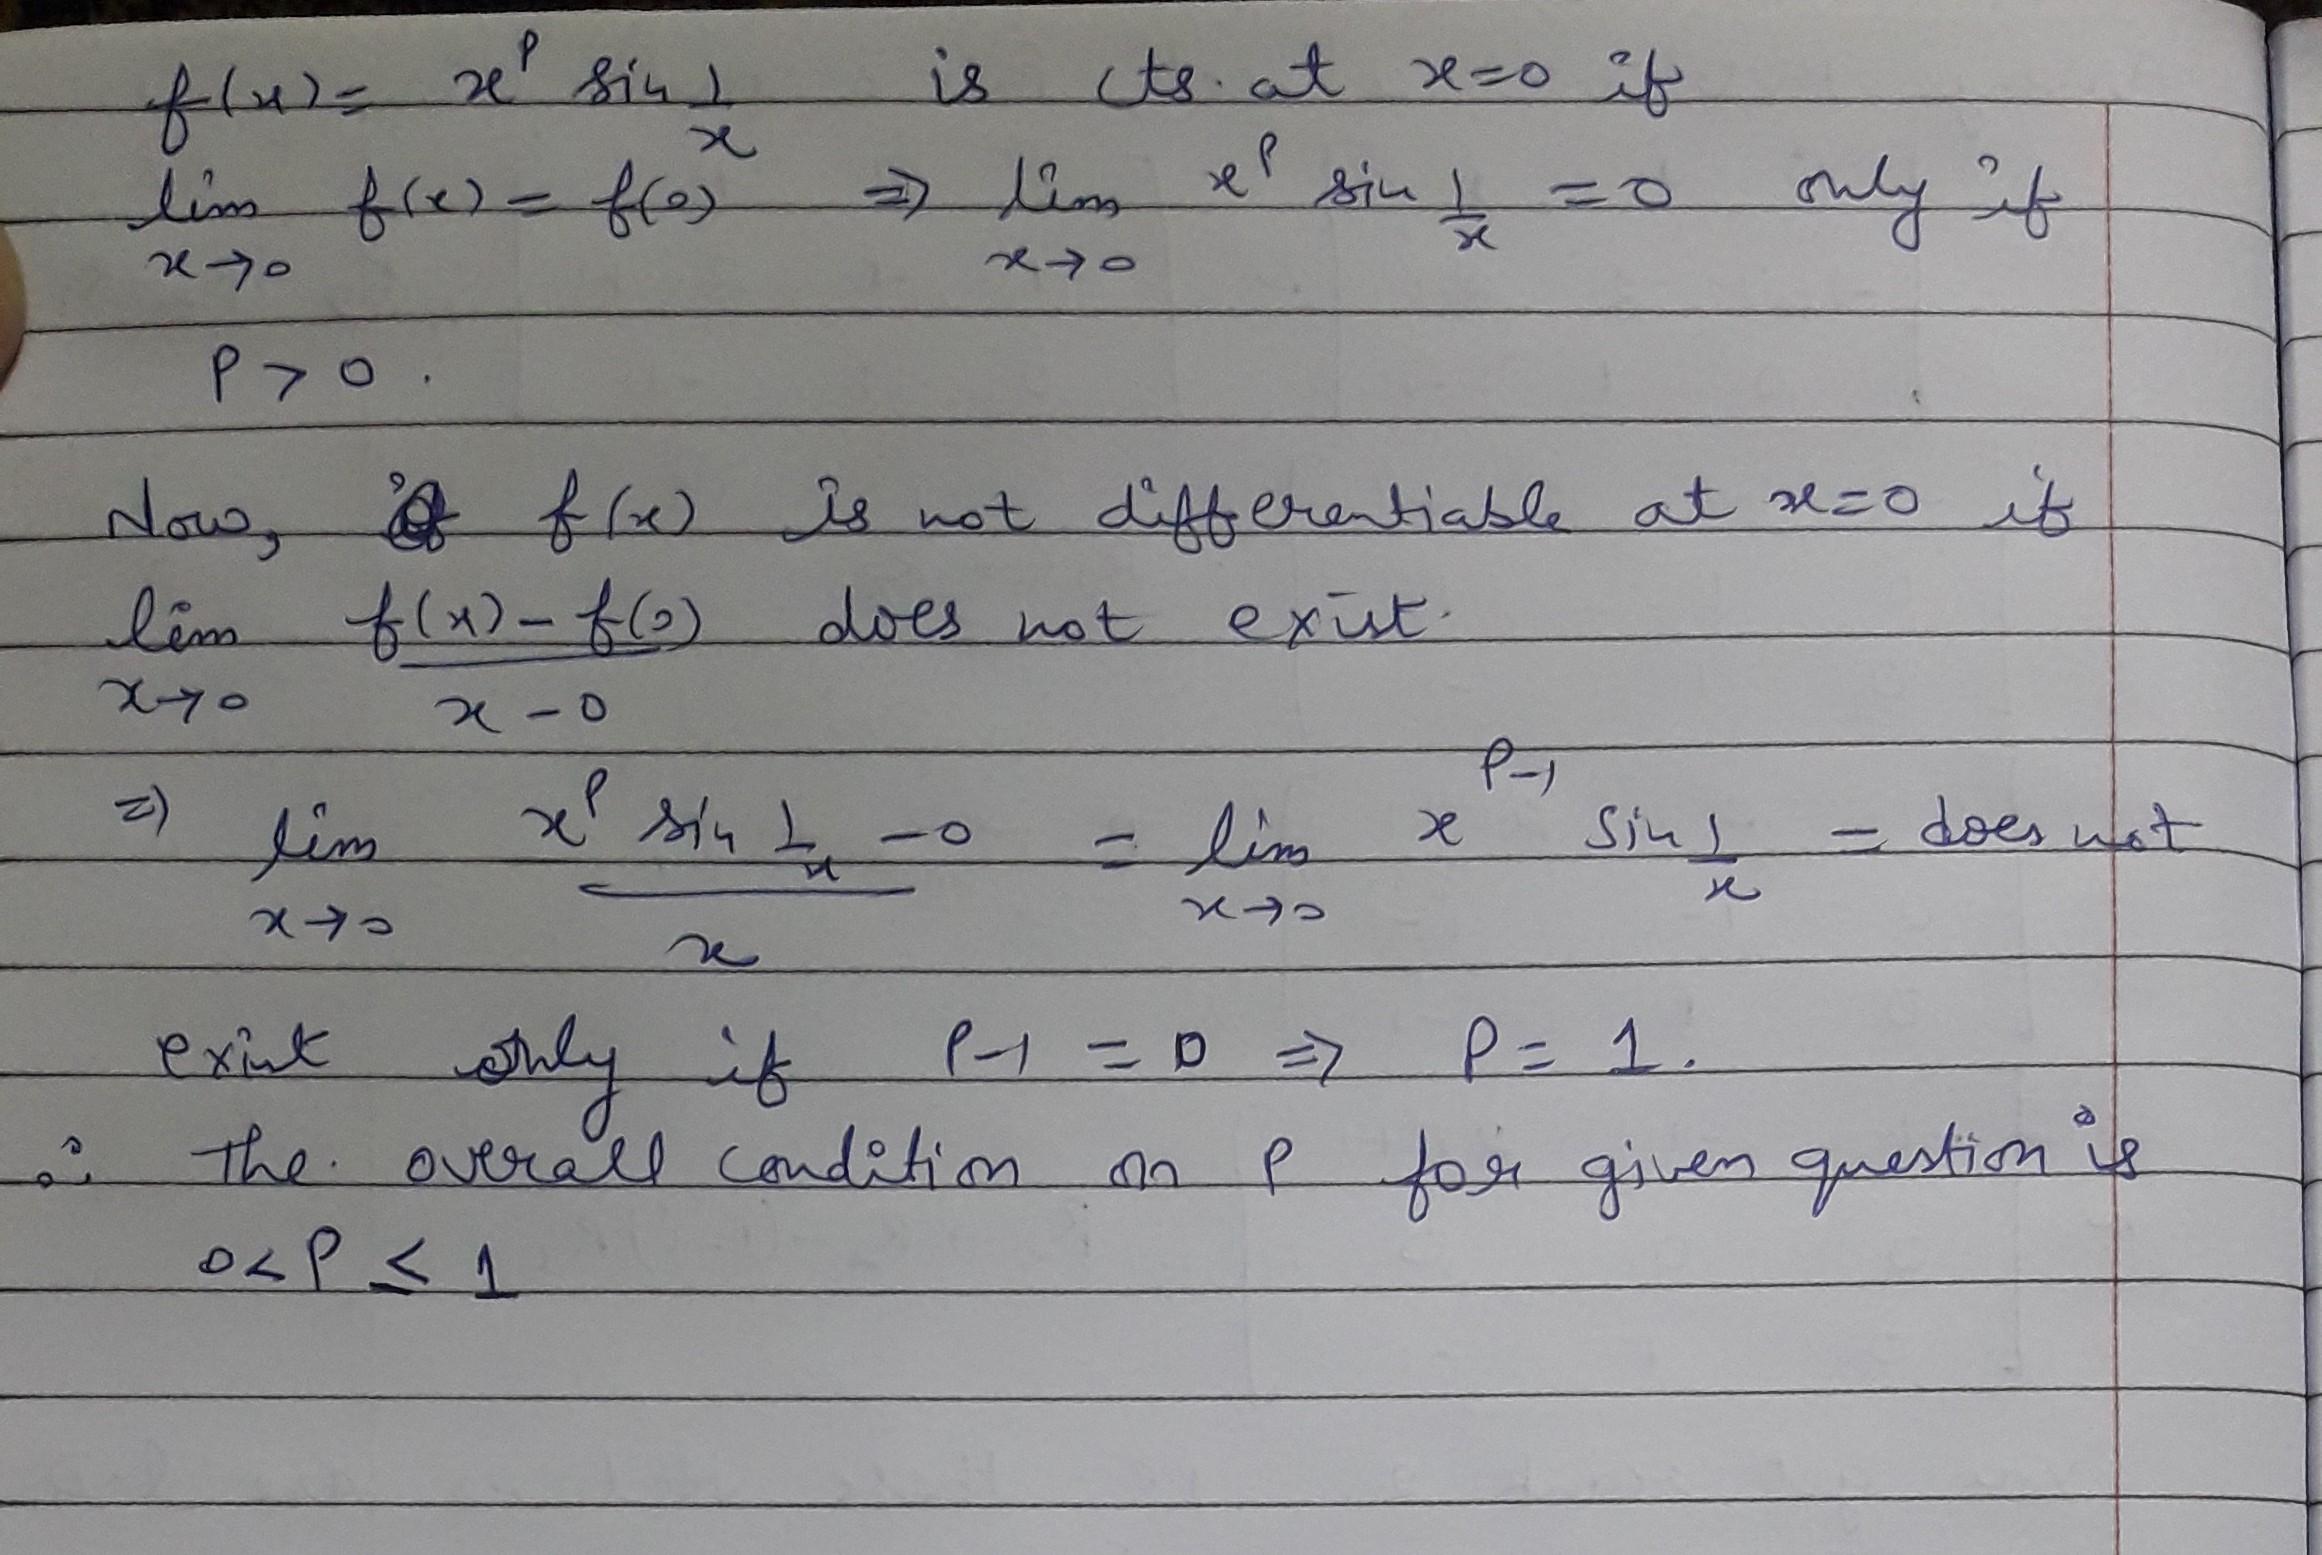 f(x) = x^p sin 1/x is cts. at x=0 if
lim x→0 f(x) = f(0) ⇒ lim x→0 x^p sin 1/x = 0 only if
P > 0 .
Now, f(x) is not differentiable at x=0 if
lim x→0 (f(x) - f(0))/(x - 0) does not exist.
⇒ lim x→0 (x^p sin 1/x - 0)/x = lim x→0 x^(P-1) sin 1/x = does not
exist only if P-1 = 0 ⇒ P = 1.
∴ The overall condition on P for given question is
0 < P ≤ 1